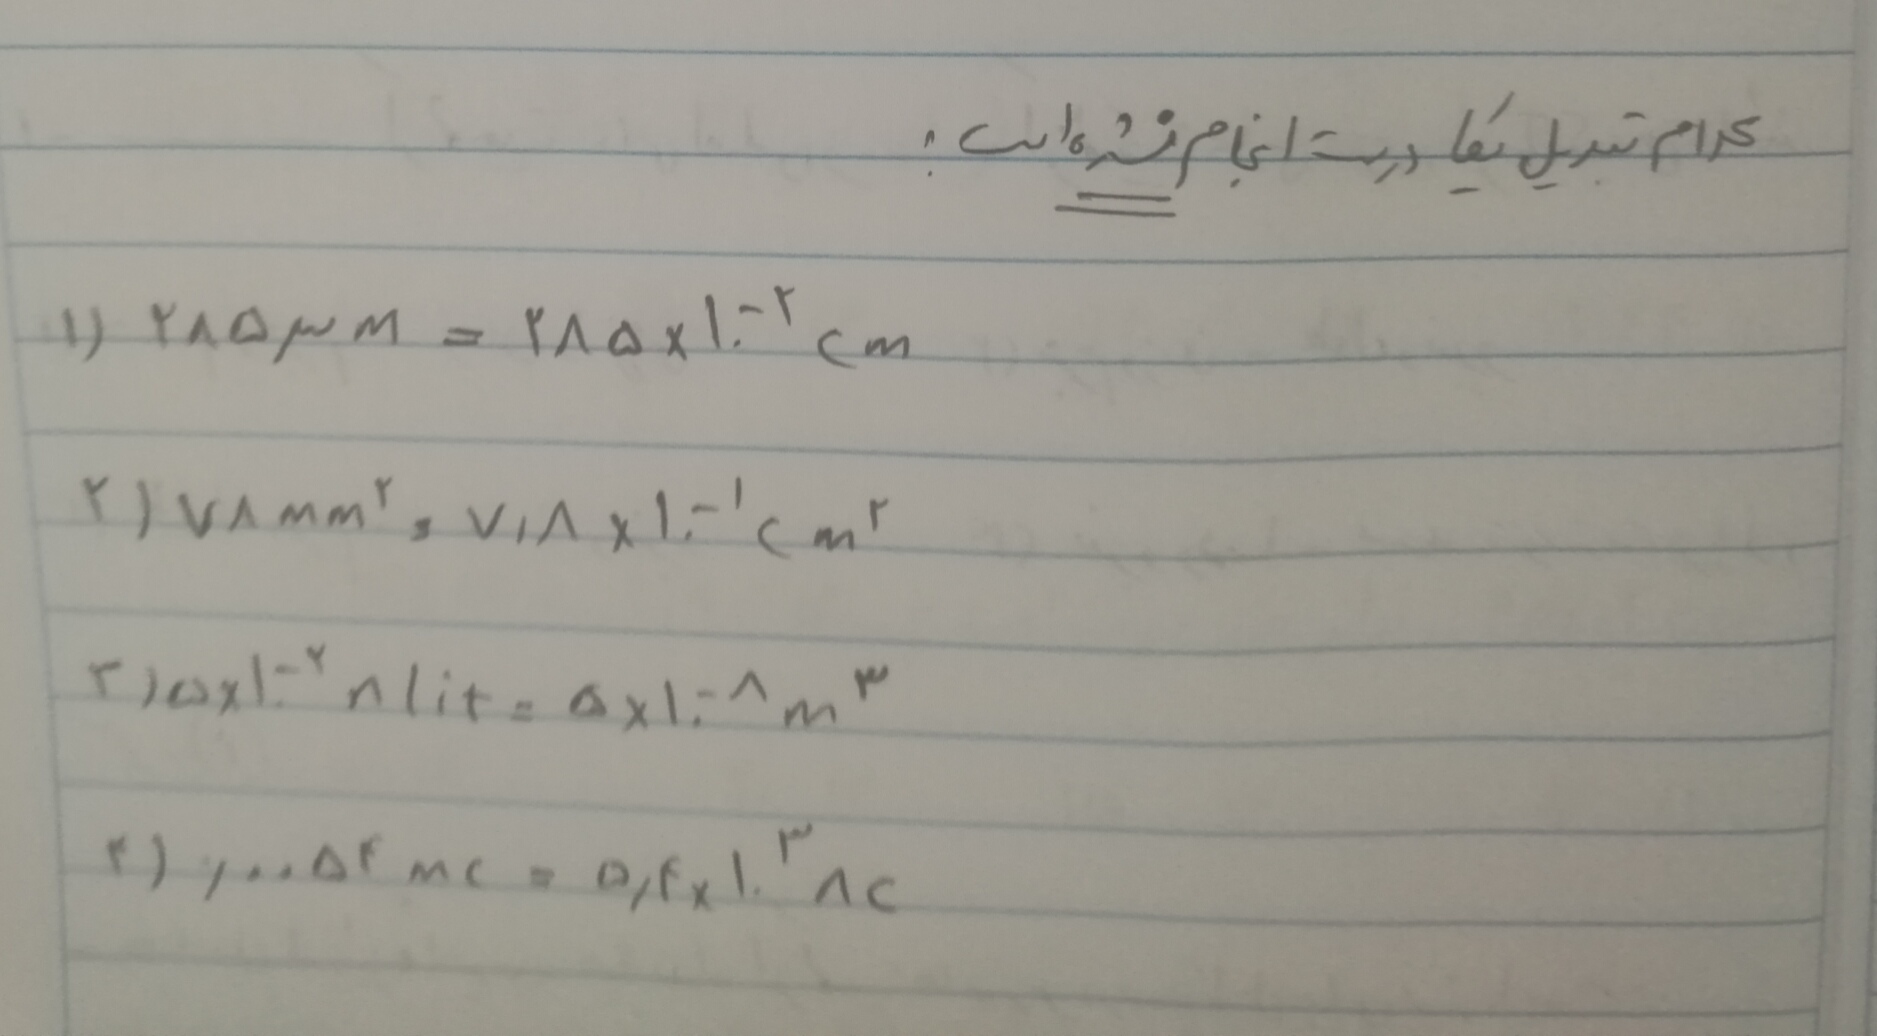 کدام تبدیل یکا درست انجام شده است:
۱) ۲۸۵ μm = ۲۸۵ × ۱۰⁻² cm
۲) ۷۸ mm² = ۷,۸ × ۱۰⁻¹ cm²
۳) ۵×۱۰⁻² nlit = ۵×۱۰⁻⁸ m³
۴) ,۰۰۵۴ mc = ۵,۴×۱۰³ nc